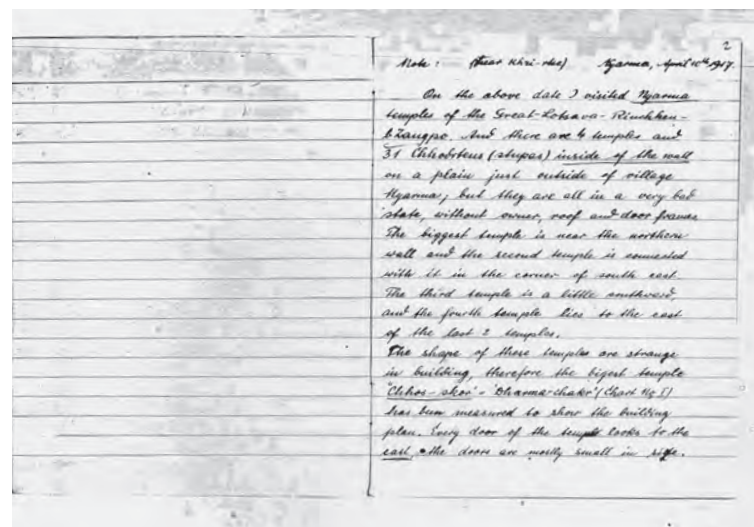 2
Note : (near Khri-rtse) Nyarma, April 10th, 1917.
On the above date I visited Nyarma
temples of the Great-Lotsava-Rinchhen-
bZangpo. And there are 4 temples and
31 Chhobrtens (stupas) inside of the wall
on a plain just outside of village
Nyarma; but they are all in a very bad
state, without owner, roof and door frames
The biggest temple is near the northern
wall and the second temple is connected
with it in the corner of south east.
The third temple is a little southward,
and the fourth temple lies to the east
of the last 2 temples.
The shape of these temples are strange
in building, therefore the bigest temple
'Chhos-skor' - 'Dharma-chakr' (Chart No I)
has been measured to show the building
plan. Every door of the temple looks to the
east, the doors are mostly small in size.